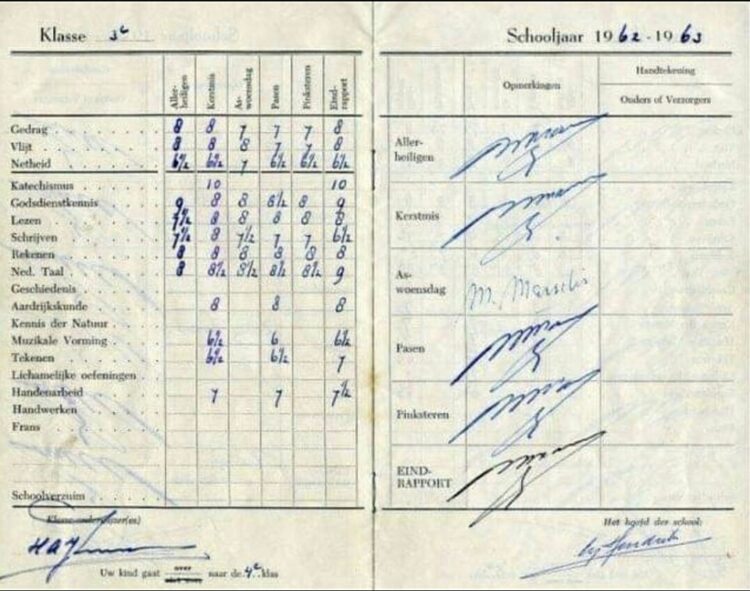 Klasse 3e
Aller-heiligen Kerstmis As-woensdag Pasen Pinksteren Eind-rapport
Gedrag 8 8 7 7 7 8
Vlijt 8 8 8 7 7 8
Netheid 6½ 6½ 7 6½ 6½ 6½
Katechismus 10 10
Godsdienstkennis 9 8 8 8½ 8 9
Lezen 7½ 8 8 8 8 8
Schrijven 7½ 8 7½ 7 7 6½
Rekenen 8 8 8 8 8 8
Ned. Taal 8 8½ 8½ 8½ 8½ 9
Geschiedenis
Aardrijkskunde 8 8 8
Kennis der Natuur
Muzikale Vorming 6½ 6 6½
Tekenen 6½ 6½ 7
Lichamelijke oefeningen
Handenarbeid 7 7 7½
Handwerken
Frans
Schoolverzuim
Klasse-onderwijzer(es)
Uw kind gaat over naar de 4e klas
Schooljaar 1962-1963
Opmerkingen
Handtekening
Ouders of Verzorgers
Aller-
heiligen
Kerstmis
As-
woensdag
Pasen
Pinksteren
EIND-
RAPPORT
Het hoofd der school: